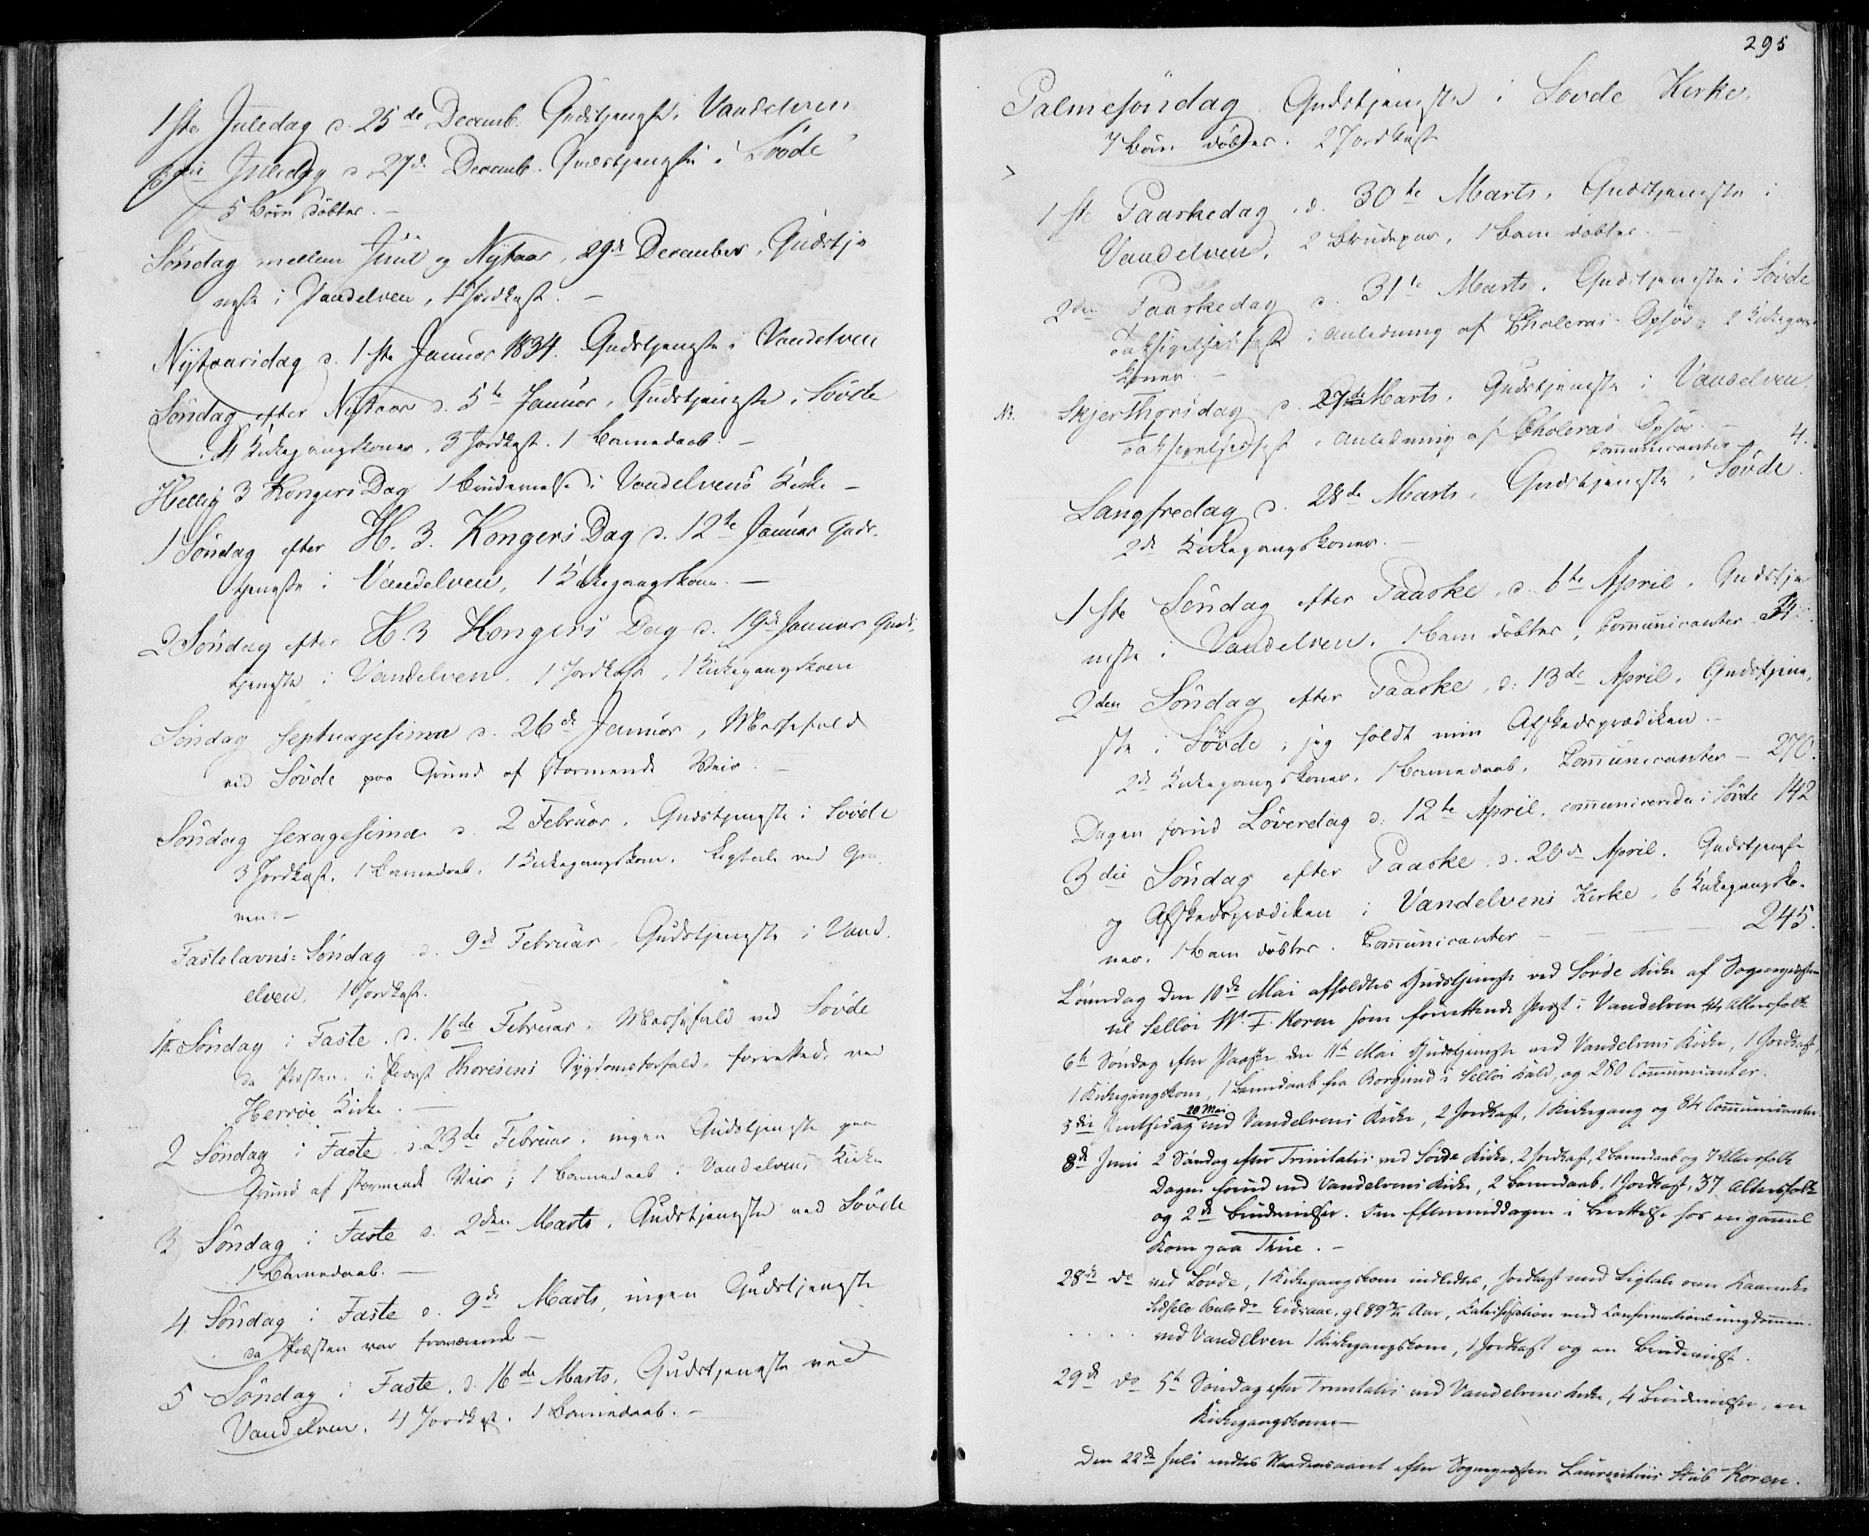 1ste Juledag d. 25de Decemb. Gudstjeneste i Vandelven
3die Juledag d. 27de Decemb. Gudstjeneste i Søvde
5 Børn døbte. —
Søndag mellem Juul og Nytaar, 29de December, Gudstje
neste i Vandelven, 1 Jordkast. —
Nytaarsdag d. 1ste Januar 1834. Gudstjeneste i Vandelven
Søndag efter Nytaar d. 5te Januar, Gudstjeneste i Søvde
4 Kirkegangskoner, 3 Jordkast. 1 Barnedaab. —
Hellig 3 Kongers Dag 1 Brudevielse i Vandelvens Kirke —
1 Søndag efter H. 3. Kongers Dag d. 12te Januar Guds-
tjeneste i Vandelven, 1 Kirkegangskone. —
2 Søndag efter H. 3 Kongers Dag d. 19de Januar Guds-
tjeneste i Vandelven. 1 Jordkast, 1 Kirkegangskone
Søndag Septuagesima d. 26de Januar, Messefald
ved Søvde paa Grund af stormende Veir. —
Søndag Sexagesima d. 2 Februar, Gudstjeneste i Søvde
3 Jordkast. 1 Barnedaab, 1 Kirkegangskone, Ligtale ved Gra
ven. —
Fastelavns-Søndag d. 9de Februar, Gudstjeneste i Vand-
elven, 1 Jordkast.
1ste Søndag i Faste, d. 16de Februar, Messefald ved Søvde
da Præsten, i Provst Thoresens Sygdomsforfald, forrettede ved
Herrøe Kirke. —
2 Søndag i Faste, d. 23de Februar, ingen Gudstjeneste paa
Grund af stormende Veir; 1 Barnedaab i Vandelvens Kirke
3 Søndag i Faste d. 2den Marts, Gudstjeneste ved Søvde
1 Barnedaab. —
4 Søndag i Faste d. 9de Marts, ingen Gudstjeneste
da Præsten var fraværende —
5 Søndag i Faste, d. 16de Marts, Gudstjeneste ved
Vandelven, 4 Jordkast. 1 Barnedaab. —
295
Palmesøndag Gudstjeneste i Søvde Kirke.
7 Børn døbtes. 2 Jordkast
1ste Paaskedag, d. 30te Marts, Gudstjeneste i
Vandelven, 2 Brudepar, 1 Barn døbtes. —
2den Paaskedag d. 31te Marts. Gudstjeneste i Søvde
Taksigelsesfest i anledning af Choleras Ophør, 2 Kirkegangs
koner. —
NB. Skjer Thorsdag d. 27de Marts, Gudstjeneste i Vandelven
Taksigelsesfest i anledning af Choleras Ophør. —
Communicanter 4.
Langfredag d. 28de Marts, Gudstjeneste i Søvde.
2de Kirkegangskoner. —
1ste Søndag efter Paaske, d. 6te April, Gudstje
neste i Vandelven, 1 Barn døbtes, Communicanter 34.
2den Søndag efter Paaske, d. 13de April, Gudstjene
ste i Søvde; jeg holdt min Afskedsprædiken. —
2de Kirkegangskoner, 1 Barnedaab, Communicanter — 270.
Dagen forud Løverdag d. 12te April, communicerede i Søvde 142
3die Søndag efter Paaske, d. 20de April. Gudstjeneste
og Afskedsprædiken i Vandelvens Kirke, 6 Kirkegangsko-
ner, 1 Barn døbtes. Communicanter — 245.
Løverdag den 10de Mai afholdtes Gudstjeneste ved Søvde Kirke af Sognepræsten
til Selløe W. F. Koren som forrettende Præst i Vandelven, 44 Altersfolk
6te Søndag efter Paaske den 11te Mai Gudstjeneste ved Vandelvens Kirke, 1 Jordkast,
1 Kirkegangskone, 1 Barnedaab fra Borgund i Selløe Kald, og 280 Communicanter.
20 Mai
3die Pintsedag ved Vandelvens Kirke, 2 Jordkast, 1 Kirkegang og 84 Communicanter.
8de Juni 2 Søndag efter Trinitatis ved Søvde Kirke, 2 Jordkast, 2 Barnedaab og 7 Altersfolk
Dagen forud ved Vandelvens Kirke, 2 Barnedaab, 1 Jordkast, 37 Altersfolk
og 2de Brudevielser. Om Eftermiddagen i Berettelse hos en gammel
Kone paa Thue. —
28de do ved Søvde, 1 Kirkegangskone indlededes, Jordkast med Ligtale over
Eidsaae, gl 89 Aar, Katechisation med Confirmationsungdommen.
. . . . ved Vandelven 1 Kirkegangskone, 1 Jordkast og en Brudevielse.
29de do 5te Søndag efter Trinitatis ved Vandelvens Kirke, 4 Brudevielser, en
Kirkegangskone —
Den 22de Juli endtes Naadensaaret efter Sognepræsten Laurentius Stub Koren.